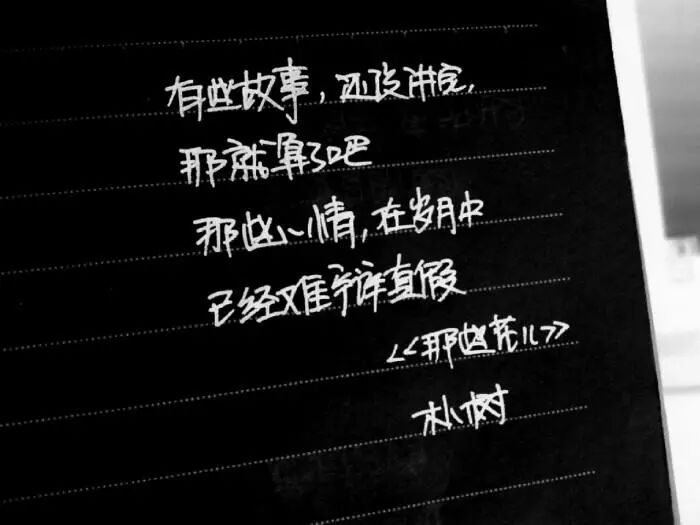 有些故事，还没讲完，
那就算了吧
那些心情，在岁月中
已经难辨真假
<<那些花儿>>
朴树